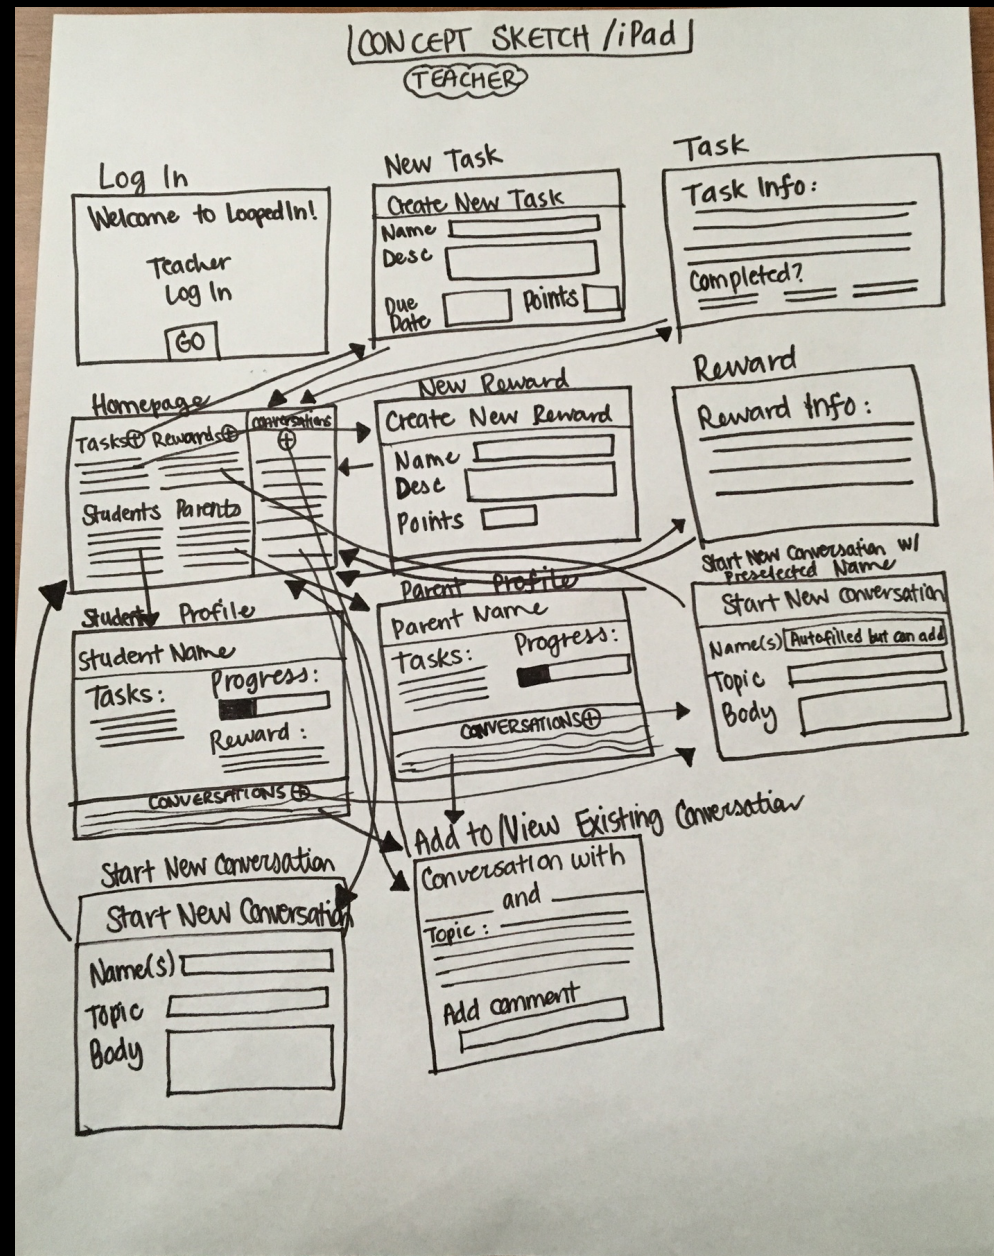 CONCEPT SKETCH /iPad
TEACHER
Log In
Welcome to LoopedIn!
Teacher
Log In
GO
New Task
Create New Task
Name
Desc
Due
Date
Points
Task
Task Info:
Completed?
Homepage
Tasks
Rewards
Conversations
Students
Parents
New Reward
Create New Reward
Name
Desc
Points
Reward
Reward Info:
Student Profile
Student Name
Tasks:
Progress:
Reward:
CONVERSATIONS
Parent Profile
Parent Name
Tasks:
Progress:
CONVERSATIONS
Start New Conversation w/
Preselected Name
Start New Conversation
Name(s)
Autofilled but can add
Topic
Body
Start New Conversation
Start New Conversation
Name(s)
Topic
Body
Add to/View Existing Conversation
Conversation with
and
Topic:
Add comment